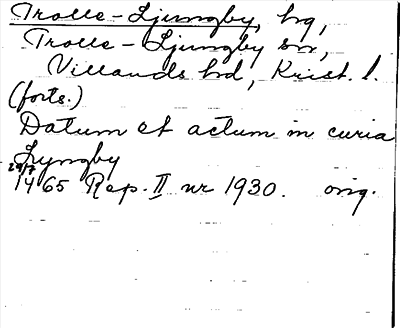 Trolle-Ljungby, hg,
Trolle-Ljungby sn,
Villands hd, Krist. l.
(forts.)
Datum et actum in curia
Lyngby
29/7
1465 Rep. II nr 1930. orig.